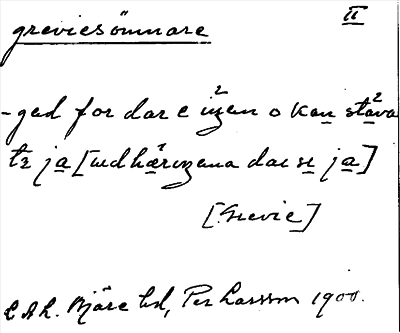 greviesömnare II
-ged for dar e iŋen o kan stava
te ja [ud hæroŋena dar se ja]
[Grevie]
L A h. Bjäre hd, Per Larsson 1900.